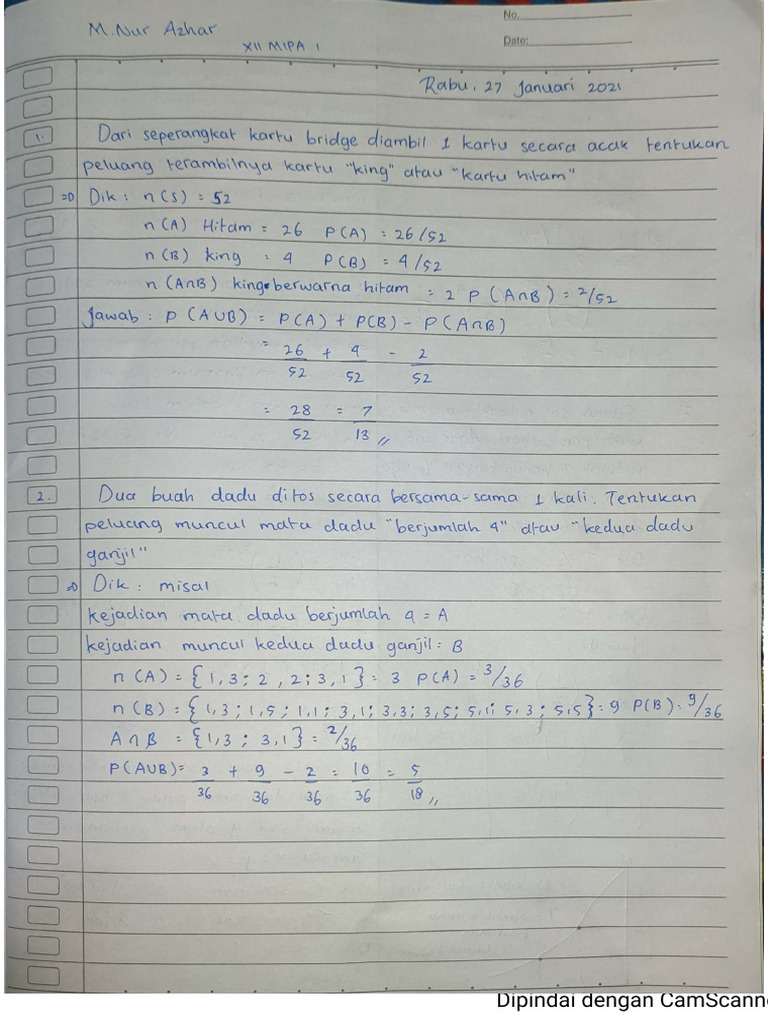 No.
M.Nur Azhar
XII MIPA 1
Date:
Rabu, 27 Januari 2021
1. Dari seperangkat kartu bridge diambil 1 kartu secara acak tentukan
peluang terambilnya kartu "king" atau "kartu hitam"
=> Dik : n(S) = 52
n(A) Hitam = 26 P(A) = 26/52
n(B) king : 4 P(B) = 4/52
n(A∩B) king berwarna hitam = 2 P(A∩B) = 2/52
Jawab : P(A∪B) = P(A) + P(B) - P(A∩B)
= 26/52 + 4/52 - 2/52
= 28/52 = 7/13 //
2. Dua buah dadu ditos secara bersama-sama 1 kali. Tentukan
peluang muncul mata dadu "berjumlah 4" atau "kedua dadu
ganjil"
=> Dik : misal
kejadian mata dadu berjumlah 4 = A
kejadian muncul kedua dadu ganjil = B
n(A) = {1,3 ; 2,2 ; 3,1} = 3 P(A) = 3/36
n(B) = {1,3 ; 1,5 ; 1,1 ; 3,1 ; 3,3 ; 3,5 ; 5,1 ; 5,3 ; 5,5} = 9 P(B) = 9/36
A∩B = {1,3 ; 3,1} = 2/36
P(A∪B) = 3/36 + 9/36 - 2/36 = 10/36 = 5/18 //
Dipindai dengan CamScann